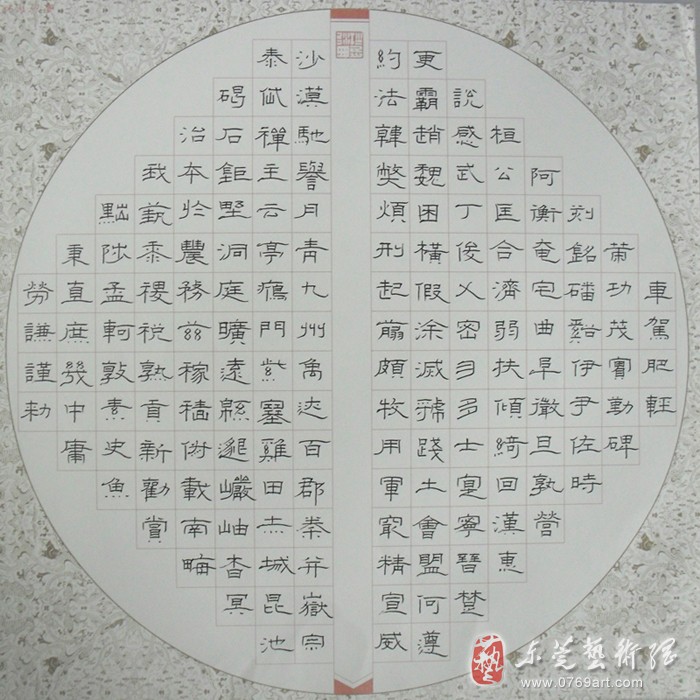 車駕肥輕
策功茂實勒碑
刻銘磻谿伊尹佐時
阿衡奄宅曲阜微旦孰營
桓公匡合濟弱扶傾綺回漢惠
說感武丁俊乂密勿多士寔寧晉楚
更霸趙魏困橫假涂滅虢踐土會盟何遵
約法韓獘煩刑起翦頗牧用軍最精宣威
沙漠馳譽丹青九州禹迹百郡秦并嶽宗
泰岱禪主云亭鴈門紫塞雞田赤城昆池
碣石鉅野洞庭曠遠緜邈巖岫杳冥
治本於農務茲稼穡俶載南畮
我蓺黍稷稅熟貢新勸賞
黜陟孟軻敦素史魚
秉直庶幾中庸
勞謙謹敕
东莞藝術網
www.0769art.com